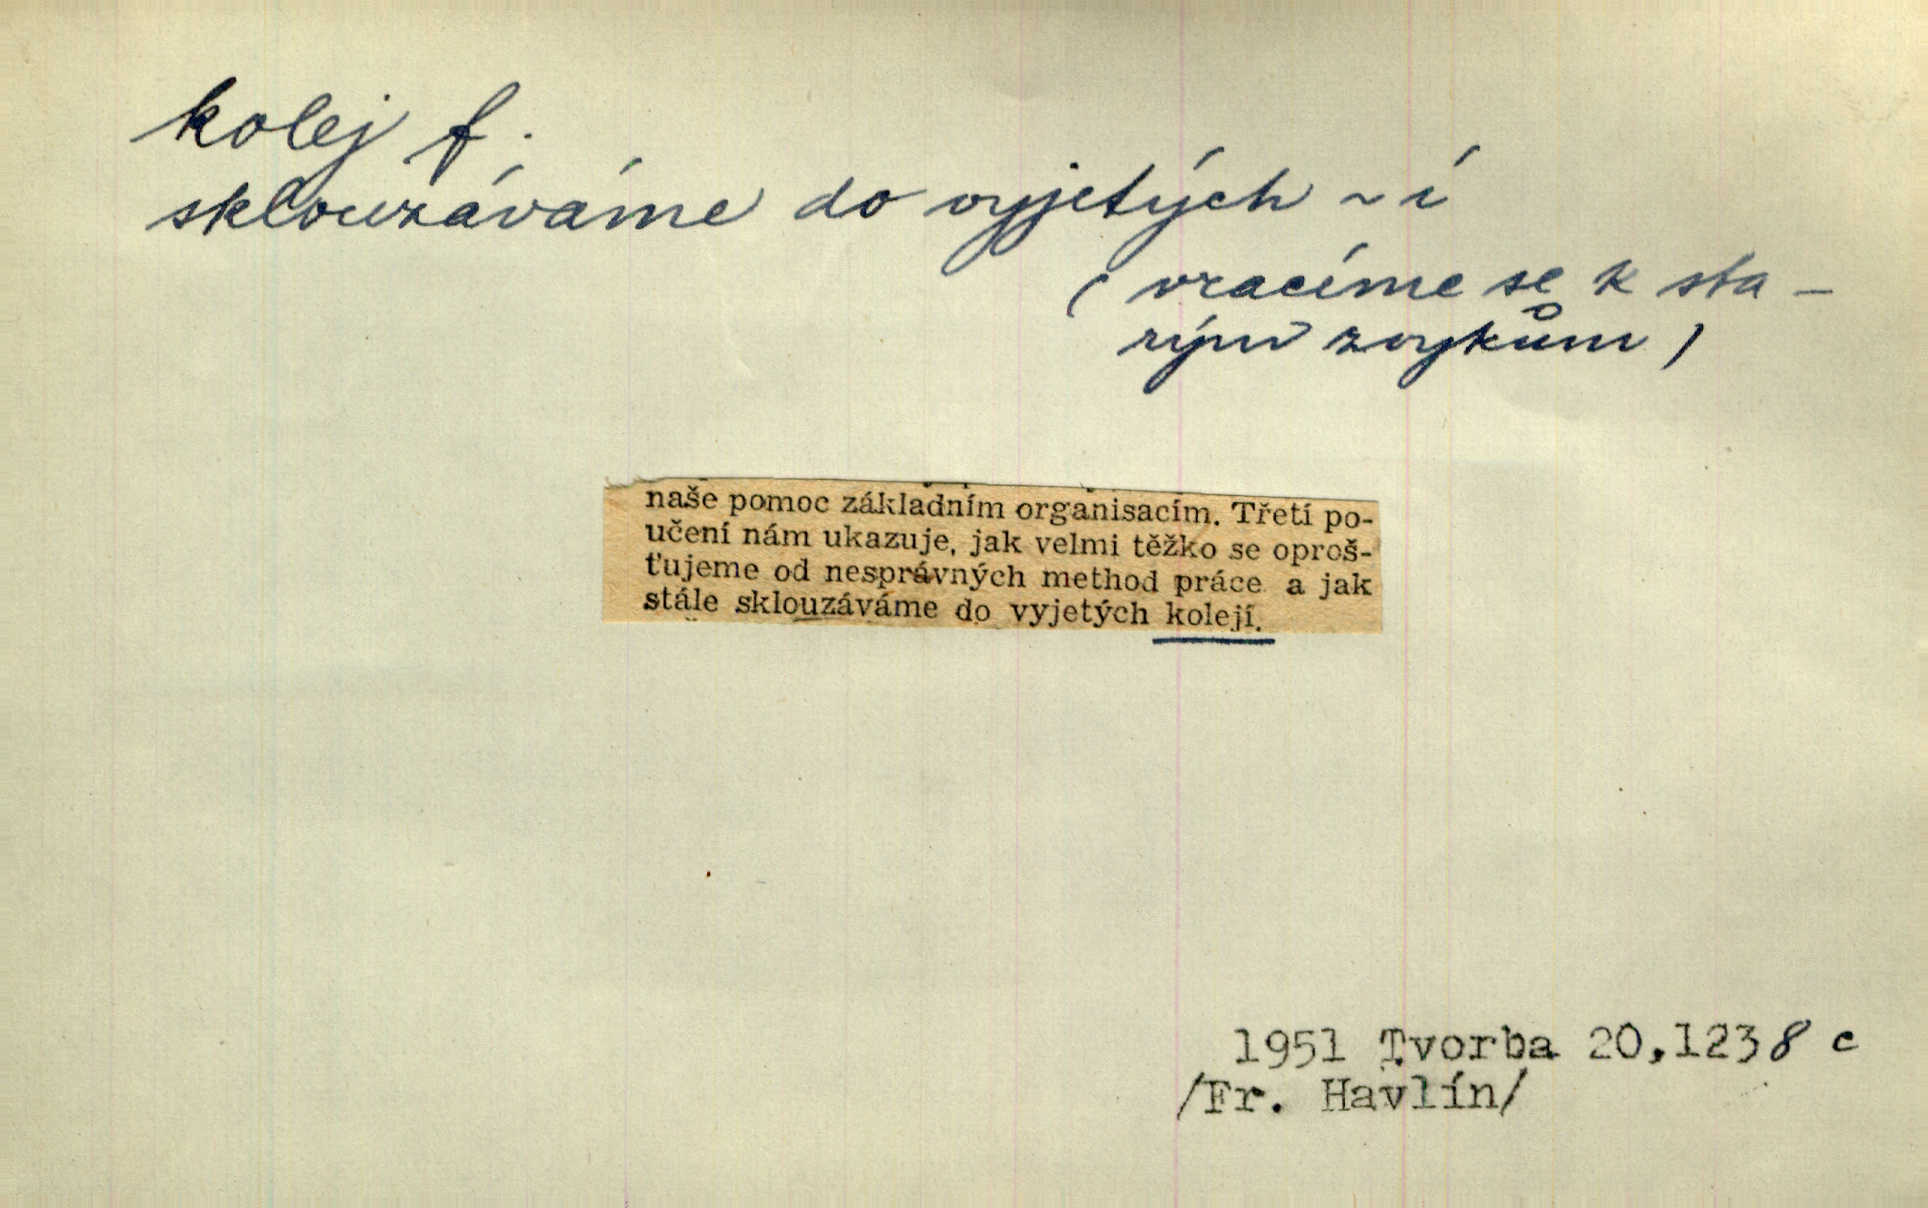 kolej f.
sklouzáváme do vyjetých ~í
(vracíme se k sta-
rým zvykům)
naše pomoc základním organisacím. Třetí po-
učení nám ukazuje, jak velmi těžko se oproš-
ťujeme od nesprávných method práce a jak
stále sklouzáváme do vyjetých kolejí.
1951 Tvorba 20,1238 c
/Fr. Havlín/